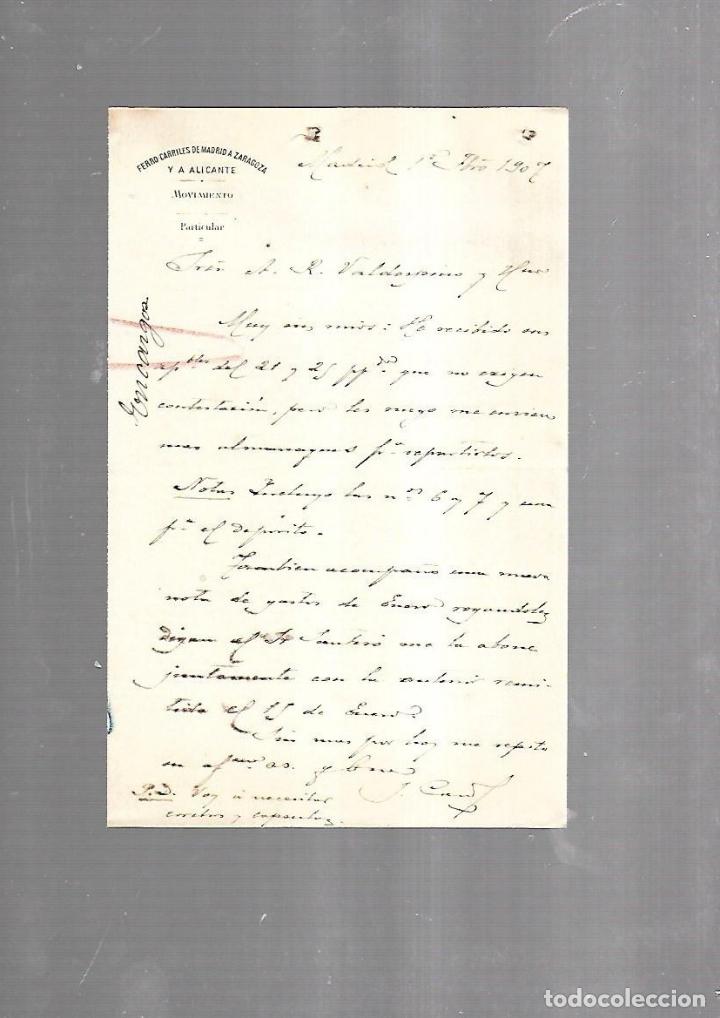 FERRO CARRILES DE MADRID A ZARAGOZA
Y A ALICANTE
MOVIMIENTO
Particular
Madrid 1º Fbro 1907
Sres A. R. Valdespino y Hno
Encargos
Muy sres mios: He recibido sus
apbles del 21 y 25 ppdo que no exigen
contestación, pero les ruego me envien
mas almanaques pª repartirlos.
Notas Incluyo las nos 6 y 7 y una
pª el depósito.
Tambien acompaño una nueva
nota de gastos de Enero rogandoles
digan al Sr Santeró me la abone
juntamente con la anterior remi-
tida el 15 de Enero.
Sin mas por hoy me repito
en
P.D. Voy á necesitar
y capsulas.
todocoleccion
todocoleccion.net